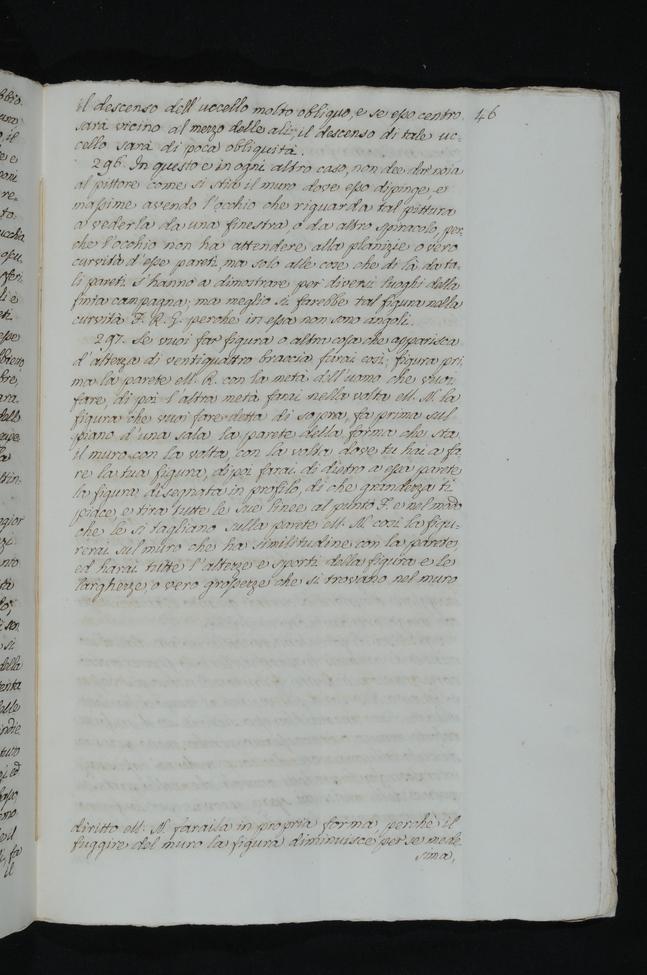 il descenso dell'uccello molto obliquo, e se esso centro 46
sarà vicino al mezzo delle ali; il descenso di tale uc-
cello sarà di poca obliquità.
296. In questo e in ogni altro caso, non dee dar noia
al pittore come si stia il muro dove esso dipinge, e
massime avendo l'occhio che riguarda tal pittura
a vederla da una finestra, o da altro spiracolo, per
che l'occhio non ha attendere alla planizie o vero
curvità d'esse pareti, ma solo alle cose che di là da ta-
li pareti s'hanno a dimostrare per diversi luoghi della
finta campagna; ma meglio si farebbe tal figura nella
curvità F. R. G. perche in essa non sono angoli.
297. Se vuoi far figura o altra cosa che apparisca
d'altezza di ventiquattro braccia farai così; figura pri
ma la parete M. R. con la metà dell'uomo che vuoi
fare, di poi l'altra metà farai nella volta M. la
figura che vuoi fare detta di sopra, fa prima sul
piano d'una sala la parete della forma che sta
il muro con la volta, con la volta dove tu hai a fa
re la tua figura, dipoi farai di dietro a essa parete
la figura disegnata in profilo, di che grandezza ti
piace, e tira tutte le sue linee al punto F. e nel modo
che le si tagliano sulla parete M. così la figu
rerai sul muro che ha similitudine con la parete,
ed harai tutte l'altezze e sporti della figura e le
larghezze, o vero grossezze che si trovano nel muro
diritto M. faraila in propria forma, perchè il
fuggire del muro la figura diminuisce per se mede
sima,